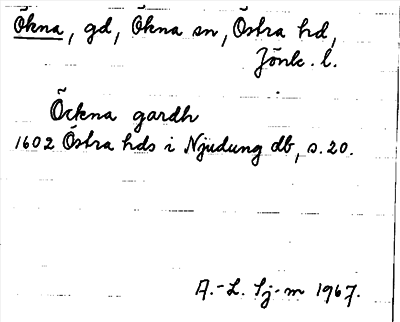 Ökna, gd, Ökna sn, Östra hd,
Jönk. l.
Öckna gardh
1602 Östra hds i Njudung db, s. 20.
A.-L. Sj-m 1967.